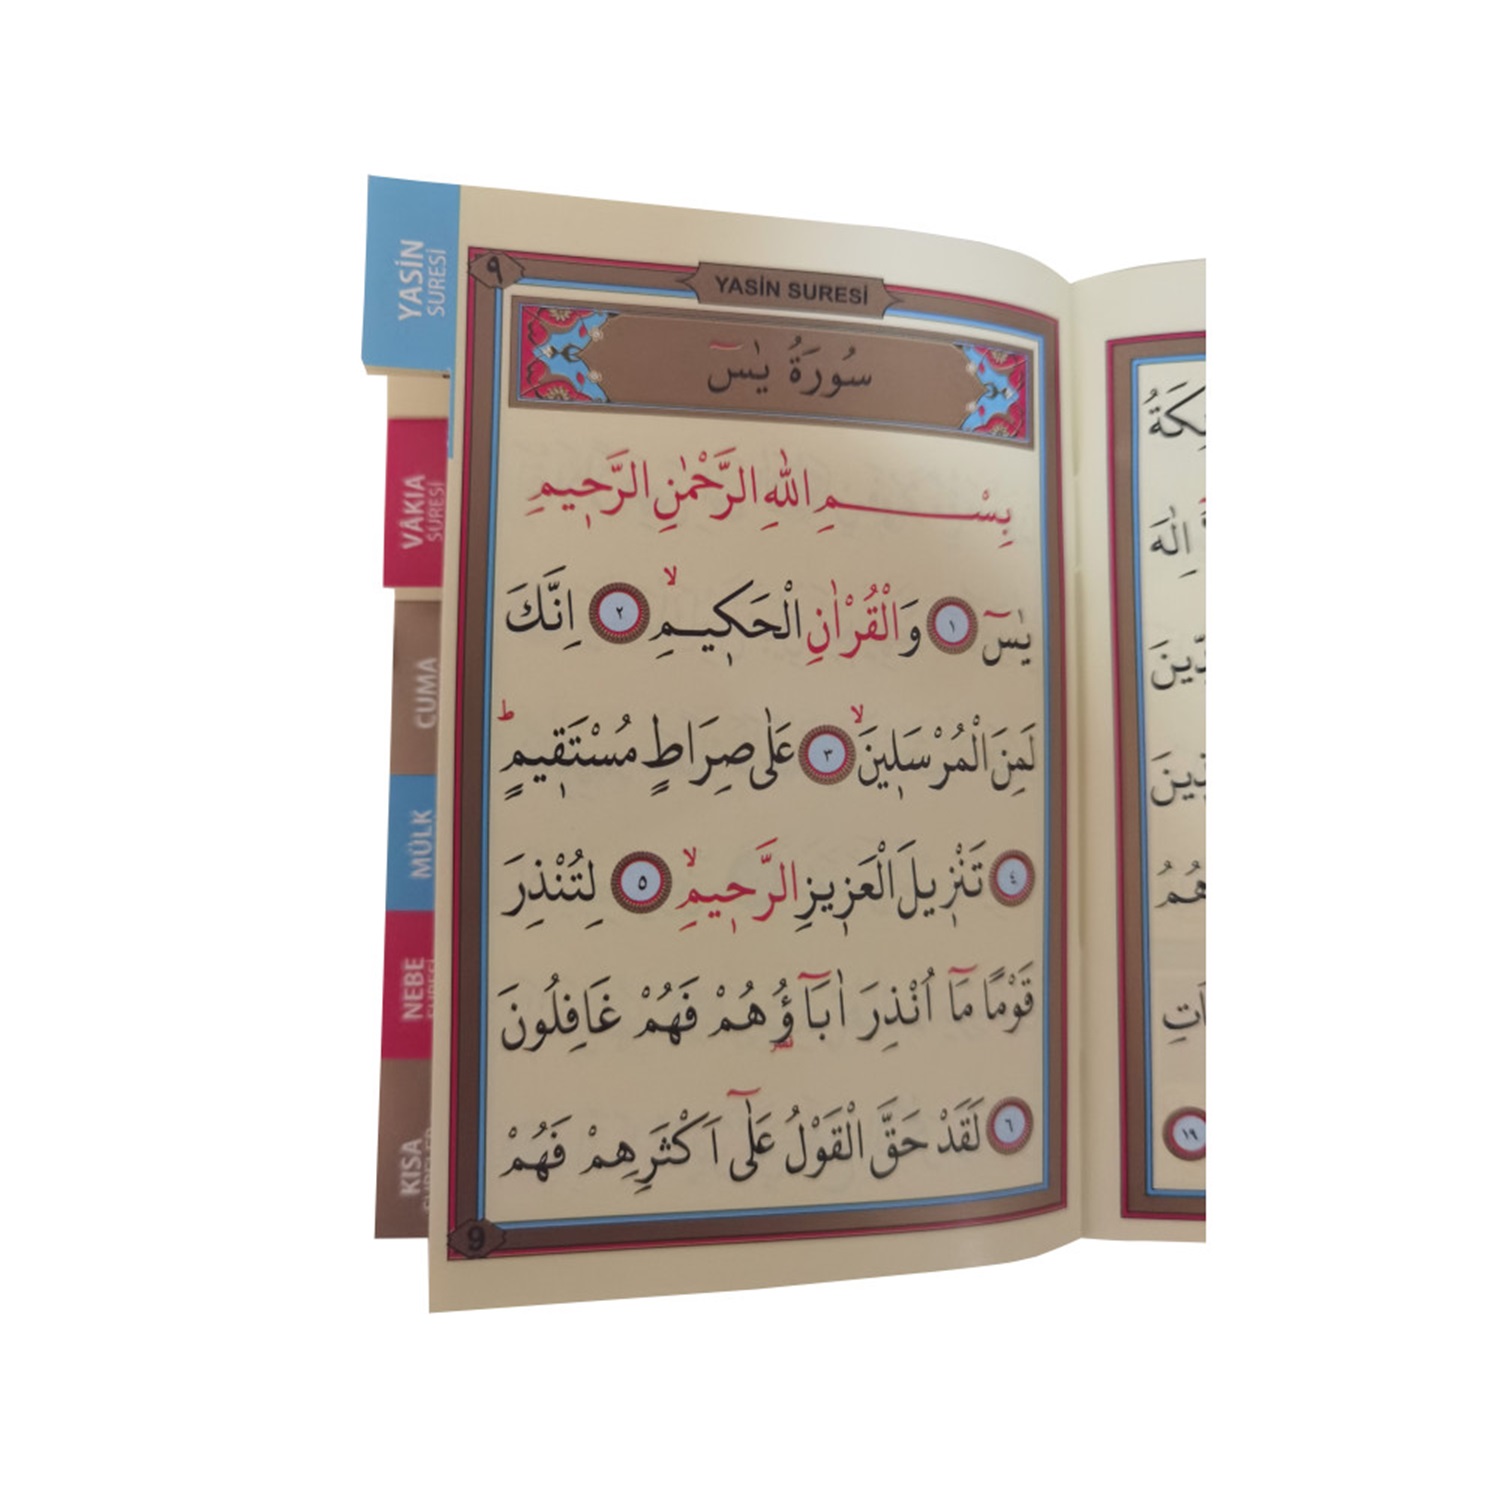 YASİN
SURESİ
VÂKIA
SURESİ
CUMA
MÜLK
NEBE
KISA
٩
YASİN SURESİ
سُورَةُ يٰسٓ
بِسْمِ اللّٰهِ الرَّحْمٰنِ الرَّحٖيمِ
يٰسٓ ١ وَالْقُرْاٰنِ الْحَكٖيمِۙ ٢ اِنَّكَ
لَمِنَ الْمُرْسَلٖينَۙ ٣ عَلٰى صِرَاطٍ مُسْتَقٖيمٍۜ
٤ تَنْزٖيلَ الْعَزٖيزِ الرَّحٖيمِۙ ٥ لِتُنْذِرَ
قَوْمًا مَٓا اُنْذِرَ اٰبَٓاؤُ۬هُمْ فَهُمْ غَافِلُونَ
قصر
٦ لَقَدْ حَقَّ الْقَوْلُ عَلٰٓى اَكْثَرِهِمْ فَهُمْ
9
اِلٰهَ
١٩